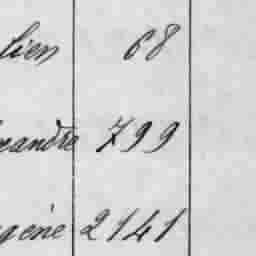 lien 68
exandre 799
ugène 2141